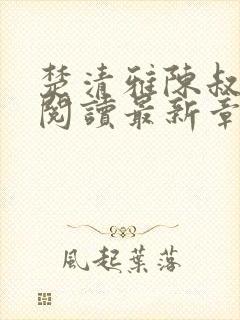 楚清雅陳叔
閱讀最新章
風起葉落